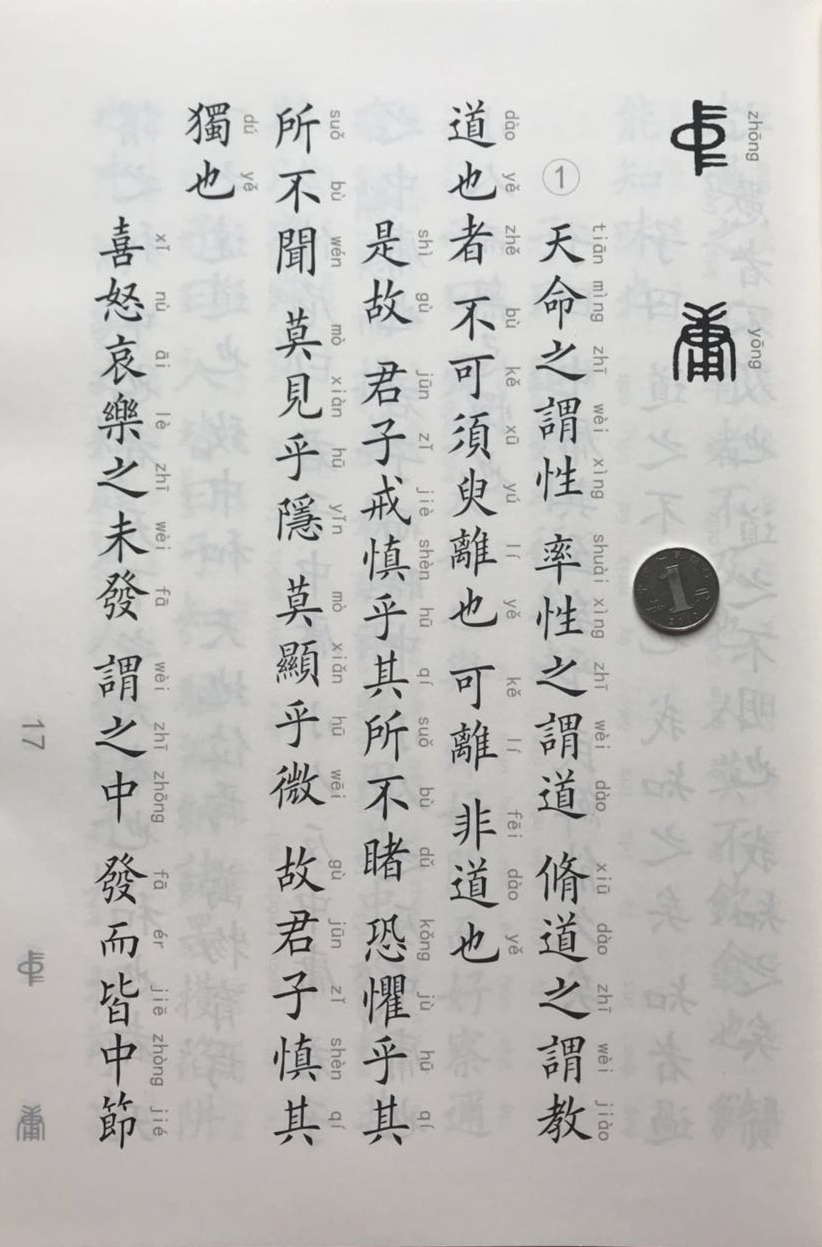 zhōng yōng
中庸
tiān mìng zhī wèi xìng shuài xìng zhī wèi dào xiū dào zhī wèi jiào
① 天命之謂性 率性之謂道 脩道之謂教
dào yě zhě bù kě xū yú lí yě kě lí fēi dào yě
道也者 不可須臾離也 可離 非道也
shì gù jūn zǐ jiè shèn hū qí suǒ bù dǔ kǒng jù hū qí
是故 君子戒慎乎其所不睹 恐懼乎其
suǒ bù wén mò xiàn hū yǐn mò xiǎn hū wēi gù jūn zǐ shèn qí
所不聞 莫見乎隱 莫顯乎微 故君子慎其
dú yě
獨也
xǐ nù āi lè zhī wèi fā wèi zhī zhōng fā ér jiē zhòng jié
喜怒哀樂之未發 謂之中 發而皆中節
17
中庸
1